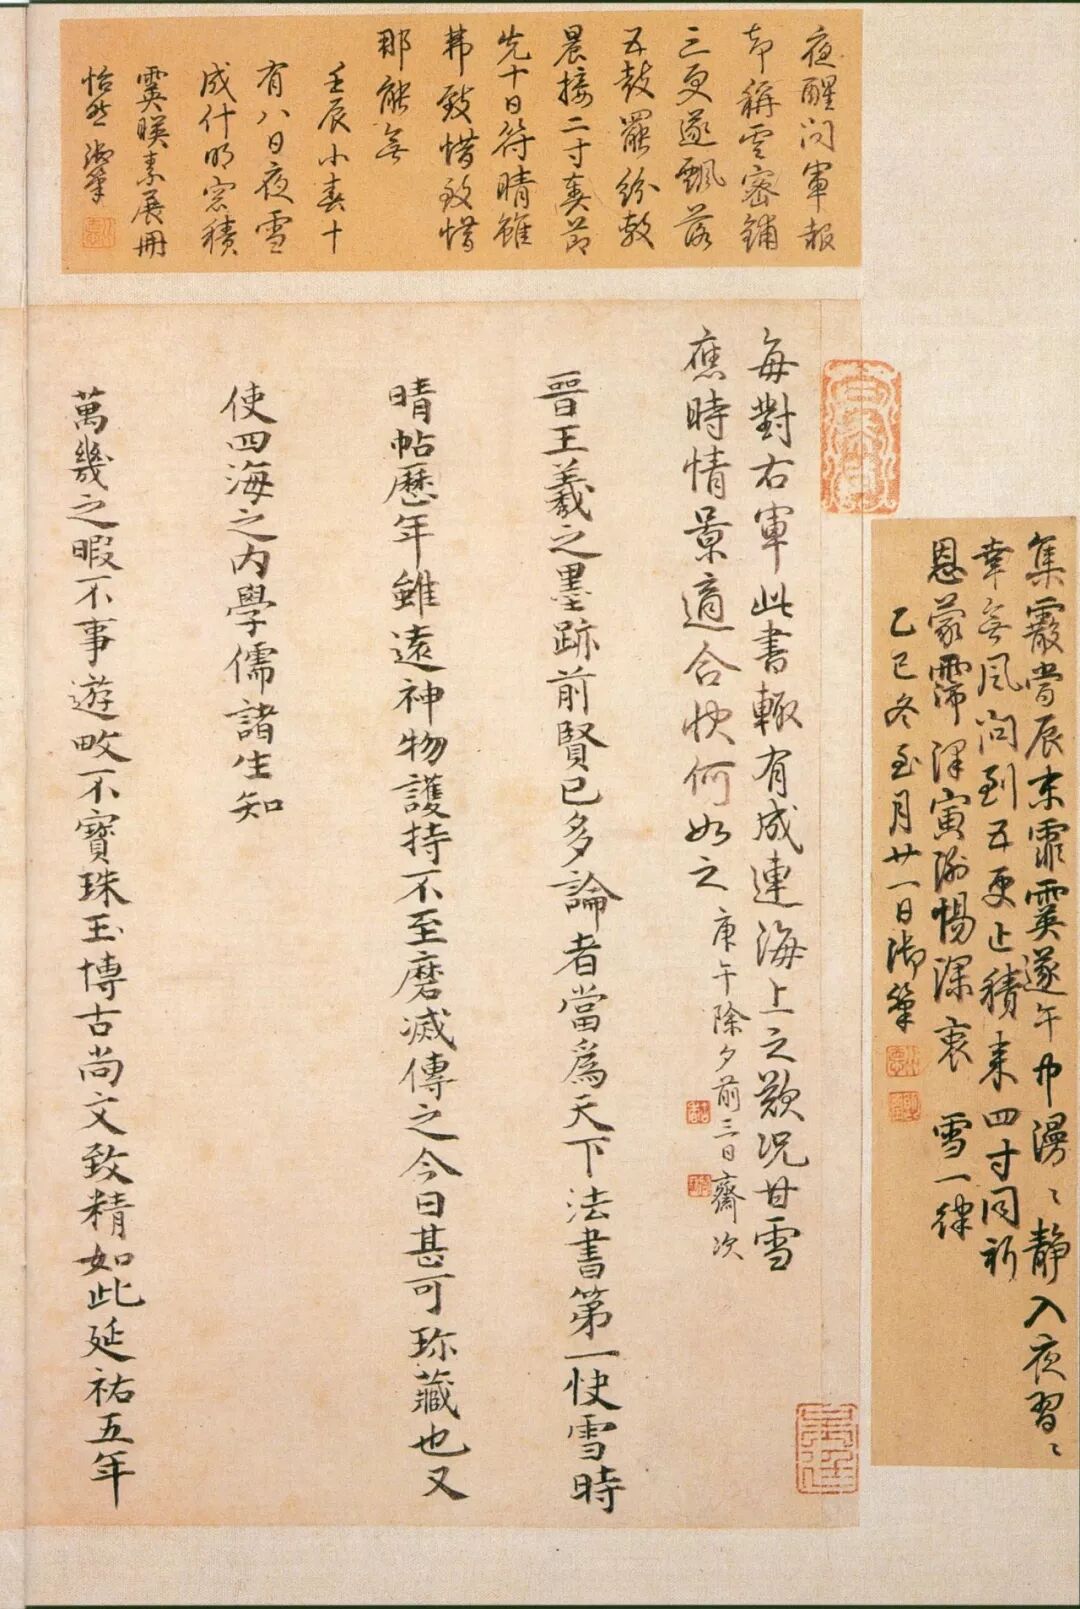 夜醒問軍報
却稱雲密鋪
三更遂飄落
五鼓罷紛敷
晨接二寸奏節
先十日符晴雖
弗致惜致惜
那能無
壬辰小春十
有八日夜雪
成什明窓積
霙暎素展冊
怡然御筆
集霰當辰末霏霙遂午中漫〻靜入夜習〻
幸無風問到五更止積來四寸同祈
恩蒙霈澤寅謝惕深衷 雪一律
乙巳冬至月廿一日御筆
每對右軍此書輙有成連海上之歎況甘雪
應時情景適合快何如之 庚午除夕前三日齋次
晉王羲之墨跡前賢已多論者當爲天下法書第一快雪時
晴帖歷年雖遠神物護持不至磨滅傳之今日甚可珎藏也又
使四海之內學儒諸生知
萬幾之暇不事遊畋不寶珠玉博古尚文致精如此延祐五年